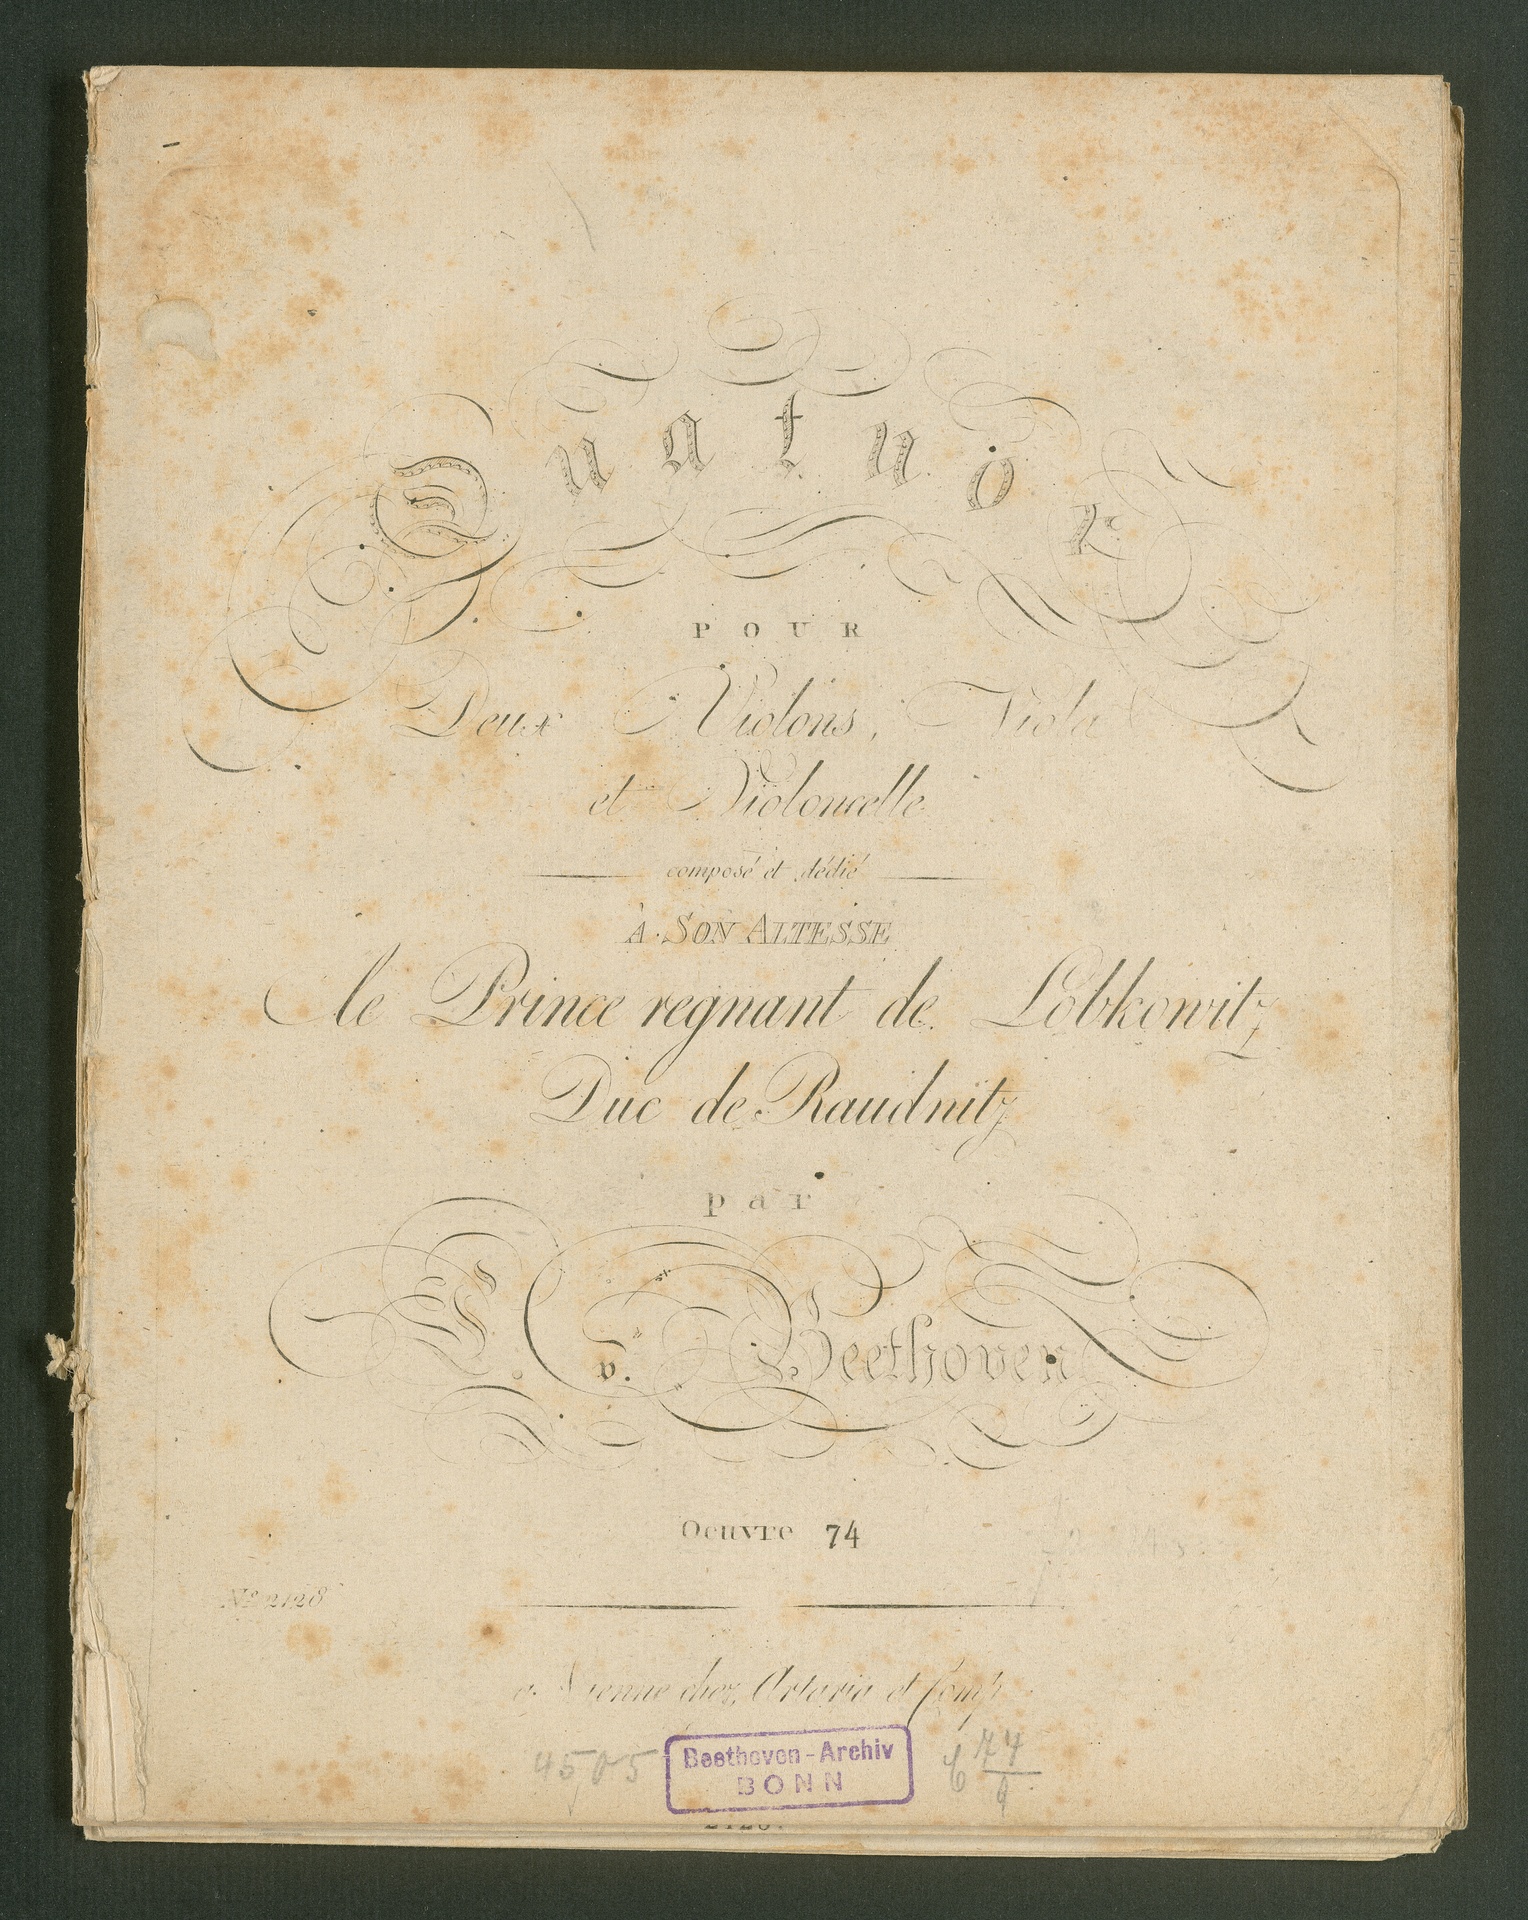 Quatuor
POUR
Deux Violons, Viola
et Violoncelle
composé et dédié
À SON ALTESSE
le Prince regnant de Lobkowitz
Duc de Raudnitz
par
L. v. Beethoven
Oeuvre 74
No 2128
a Vienne chez Artaria et Comp
4505
Beethoven-Archiv
BONN
C 74
2128.